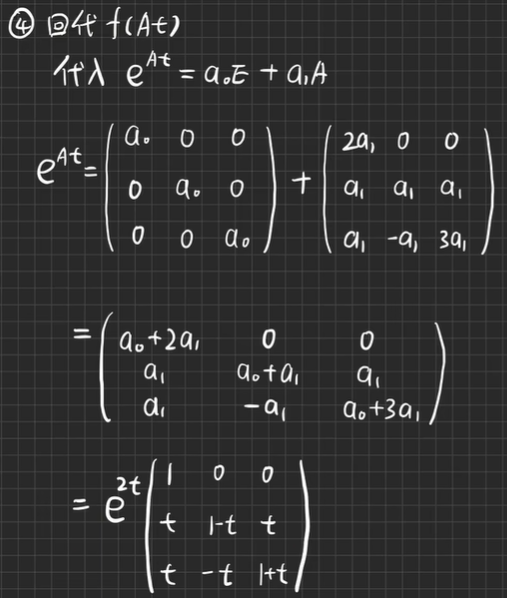 ④ 回代 f(At)
代入 e^{At} = a₀E + a₁A
e^{At} = \begin{pmatrix} a₀ & 0 & 0 \\ 0 & a₀ & 0 \\ 0 & 0 & a₀ \end{pmatrix} + \begin{pmatrix} 2a₁ & 0 & 0 \\ a₁ & a₁ & a₁ \\ a₁ & -a₁ & 3a₁ \end{pmatrix}
= \begin{pmatrix} a₀+2a₁ & 0 & 0 \\ a₁ & a₀+a₁ & a₁ \\ a₁ & -a₁ & a₀+3a₁ \end{pmatrix}
= e^{2t} \begin{pmatrix} 1 & 0 & 0 \\ t & 1-t & t \\ t & -t & 1+t \end{pmatrix}